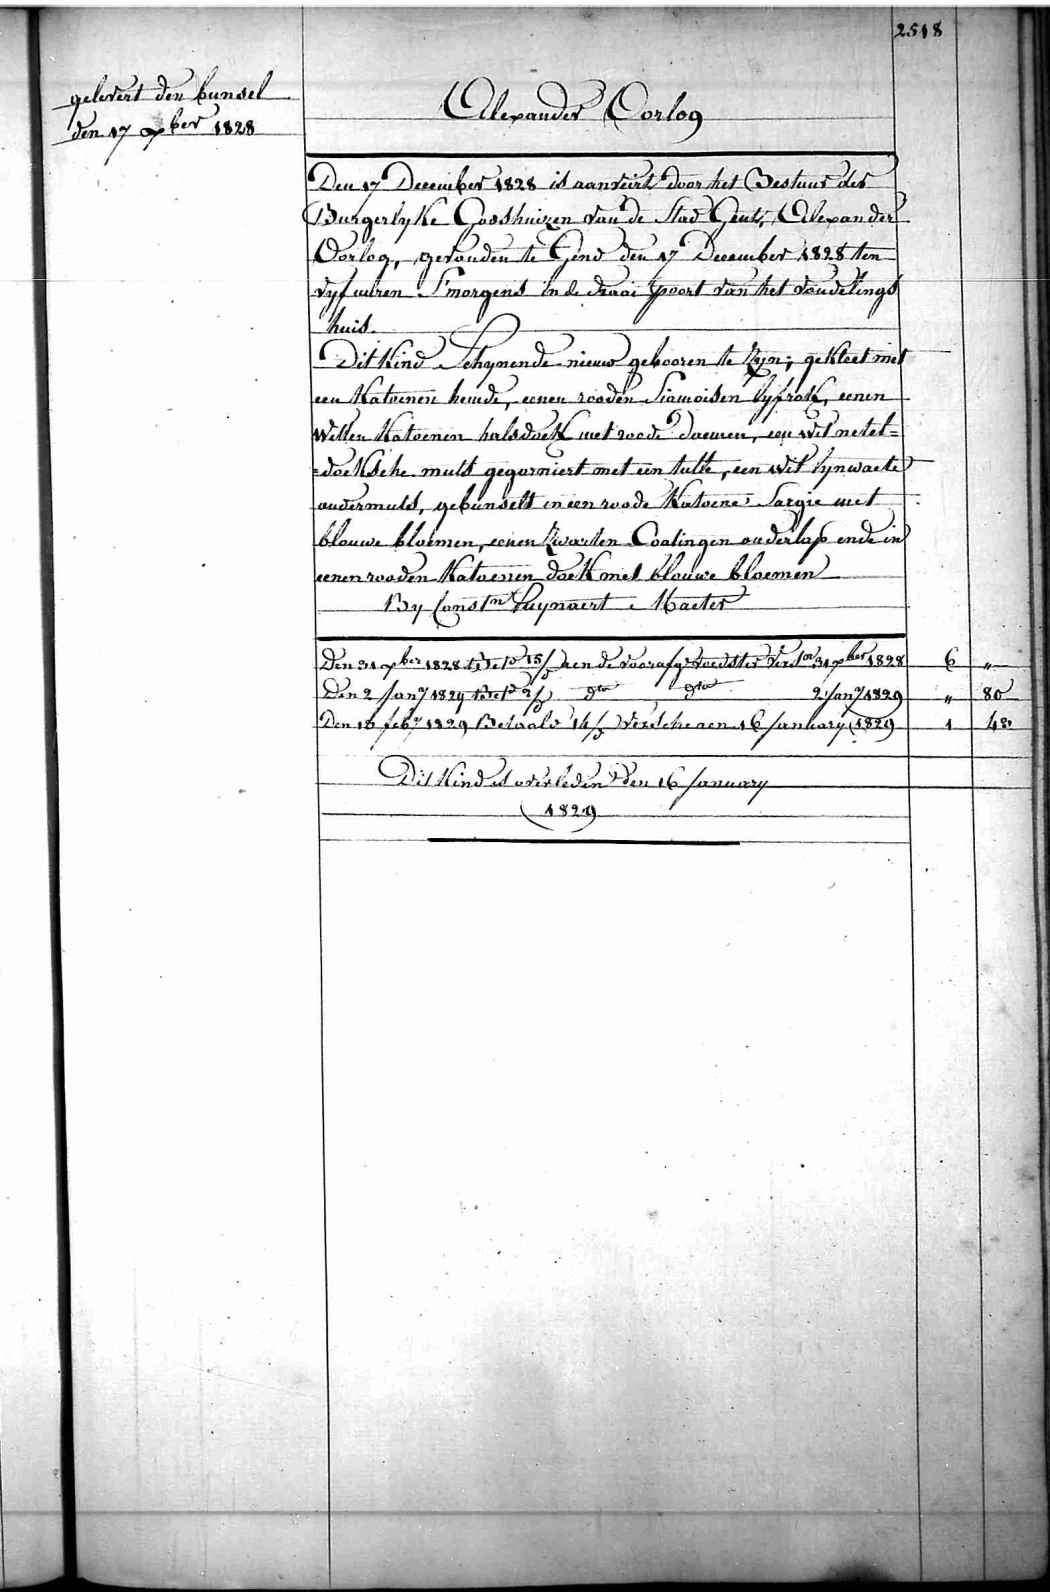 2518
gelevert den bunsel
den 17 xber 1828
Alexander Oorlog
Den 17 December 1828 is aanveirt door het Bestuur der
Burgerlyke Godshuizen van de Stad Gent, Alexander
Oorlog, gevonden te Gend den 17 December 1828 ten
vyf uuren S'morgens in de draai poort van het vondelings
huis.
Dit Kind Schynende nieuw gebooren te Zyn; gekleet met
een Katoenen hemde, eenen rooden Siamoisen lyfrok, eenen
Witten Katoenen halsdoek met roode boorden, een wit netel=
=doeksche muts gegarniert met een tulle, een wit lynwaete
ondermuts, gebunselt in een roode Katoene Sargie met
blauwe bloemen, eenen Zwarten Coatingen onderlap ende in
eenen rooden Katoenen doek met blauwe bloemen
By Constn Luynaert Maeter
Den 31 xber 1828 15/ aen de voorafge voedster verschn 31 xber 1828 6 "
Den 2 Jany 1829 2/ dto dto 2 Jany 1829 " 80
Den 18 feby 1829 Betaald 14/ verscheaen 16 January 1829 1 48
Dit Kind is overleden den 16 January
1829